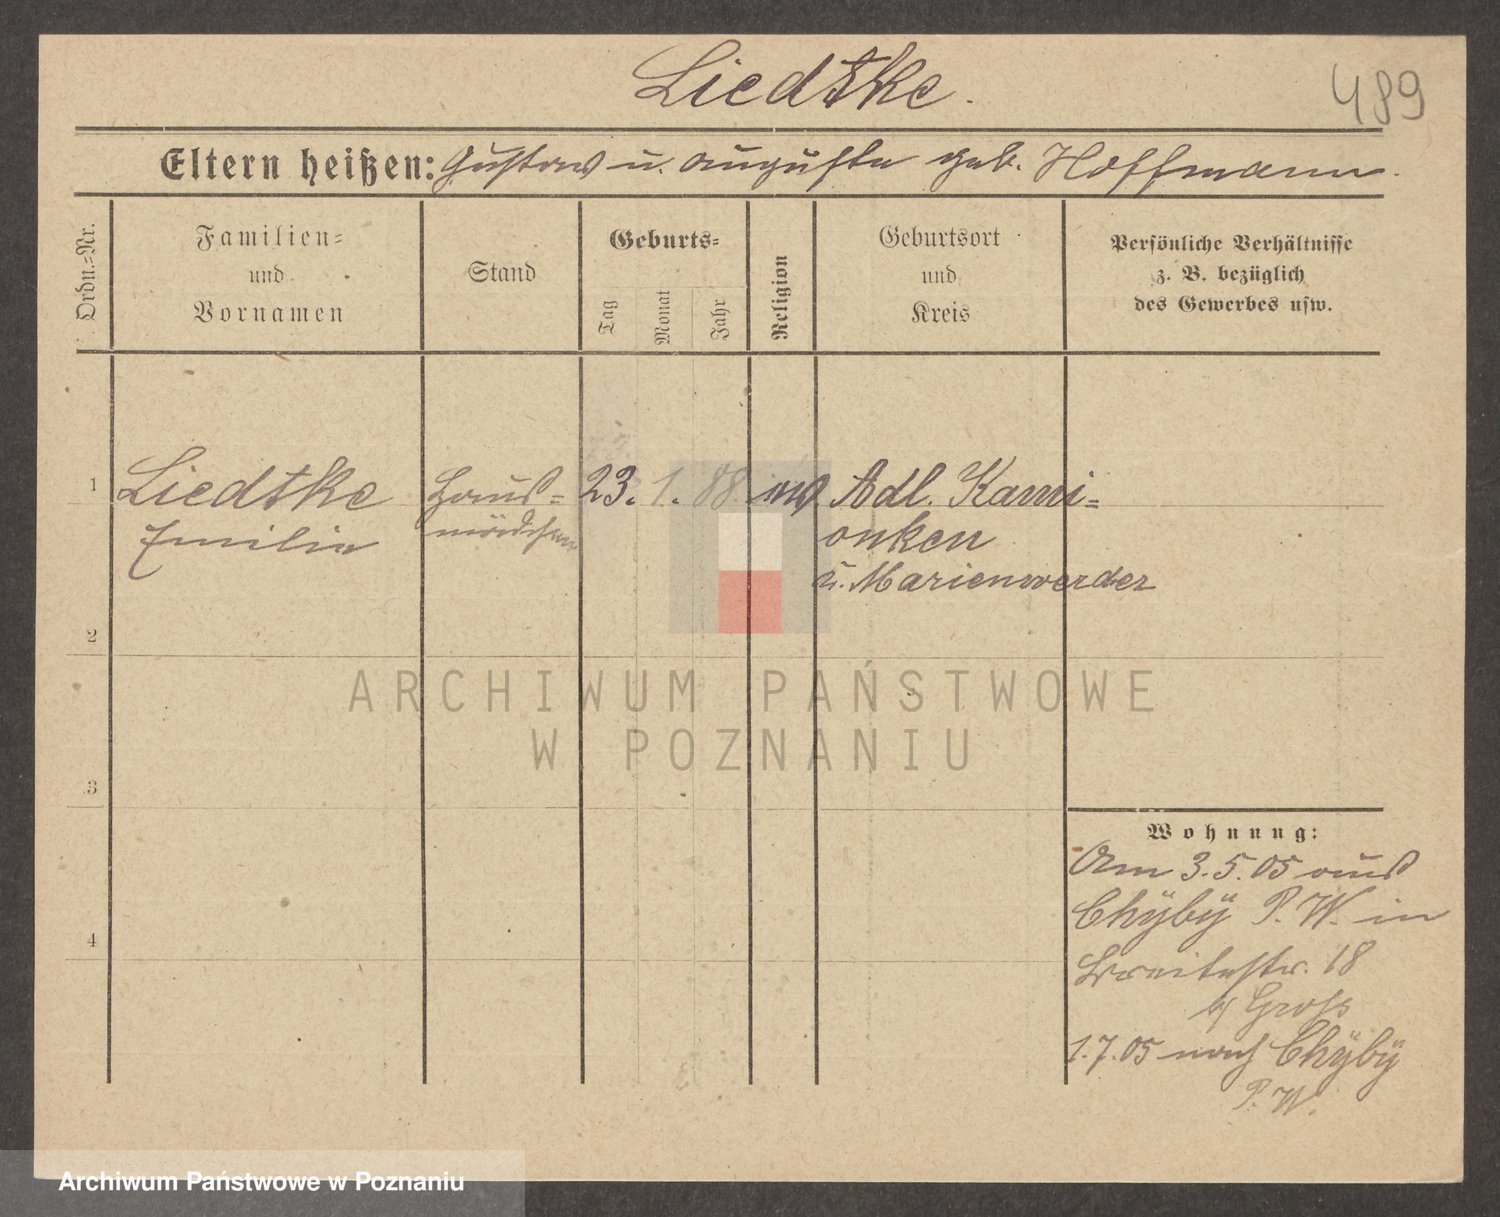 Liedtke.
489
Eltern heißen: Gustav u. Auguste geb. Hoffmann.
Ordn.-Nr.
Familien-
und
Vornamen
Stand
Geburts-
Tag
Monat
Jahr
Religion
Geburtsort
und
Kreis
Persönliche Verhältnisse
z. B. bezüglich
des Gewerbes usw.
1
Liedtke
Emilie
Haus-
mädchen
23. 1. 88
ev.
Adl. Kami-
onken
Marienwerder
2
3
4
ARCHIWUM PAŃSTWOWE
W POZNANIU
Wohnung:
Am 3.5.05 aus
Chÿbÿ P. W. in
Breitestr. 18
b/ Groß
1.7.05 nach Chÿbÿ
P. W.
Archiwum Państwowe w Poznaniu